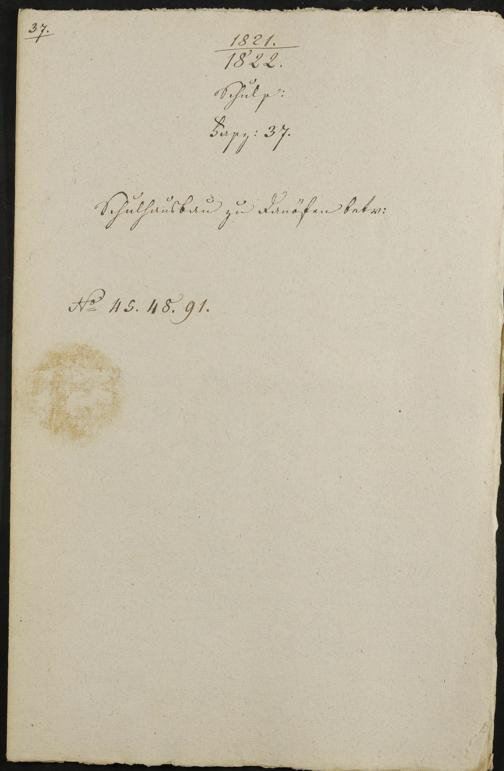 37.
1821.
1822.
Schulf:
Fasz: 37.
Schulhausbau zu Danöfen betr:
No 45. 48. 91.